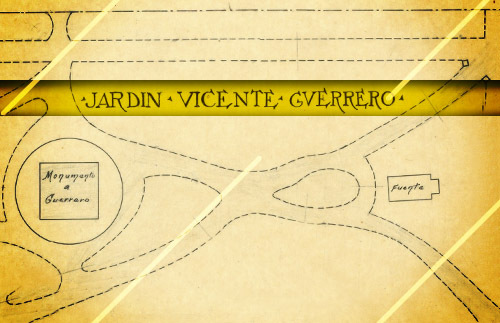 · JARDIN · VICENTE · GVERRERO ·
Monumento
a
Guerrero
Fuente